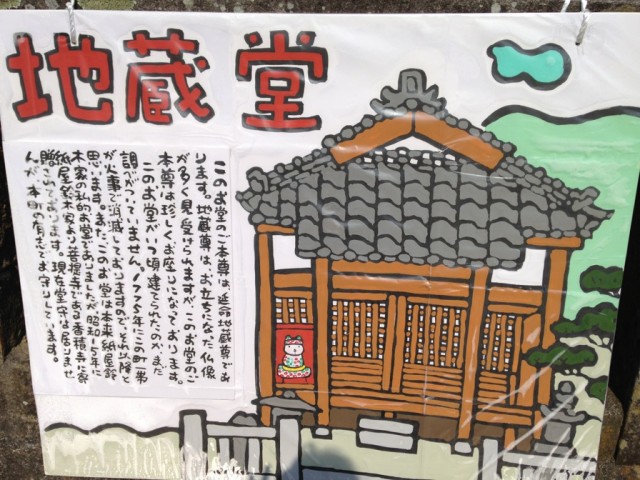 地蔵堂
このお堂のご本尊は、延命地蔵尊であ
ります。地蔵尊は、お立ちになった仏像
が多く見受けられますが、このお堂のご
本尊は珍しくお座りになっております。
このお堂がいつ頃建てられたのかまだ
調べがついていません。1775年にこの町一帯
が火事で消滅しておりますので、それ以降と
思います。また、このお堂は本来紙屋鈴
木家の私的お堂でありましたが、昭和15年に
紙屋鈴木家より菩提寺である香積寺に寄
贈されております。現在堂守は居りませ
んが、本町の有志でお守りしています。